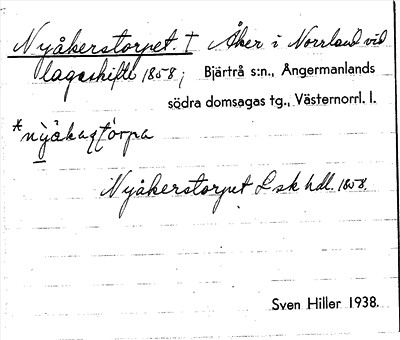 Nyåkerstorpet. † Åker i Norrland vid
lagaskifte 1858; Bjärtrå s:n., Ångermanlands
södra domsagas tg., Västernorrl. l.
*nỳåkaṣtórpa
Nyåkerstorpet Lsk hdl. 1858.
Sven Hiller 1938.